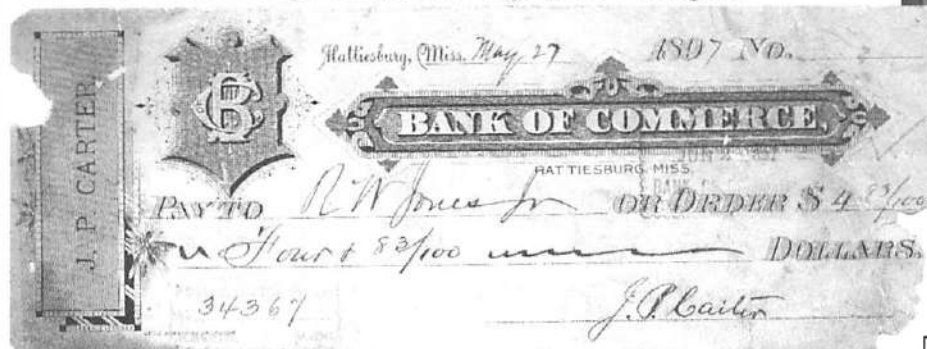 J. P. CARTER
Hattiesburg, Miss. May 27 1897 No.
BANK OF COMMERCE,
HATTIESBURG, MISS.
PAY TO R W Jones Jr OR ORDER $ 4 83/100
Four & 83/100 DOLLARS.
34367
J. P. Carter